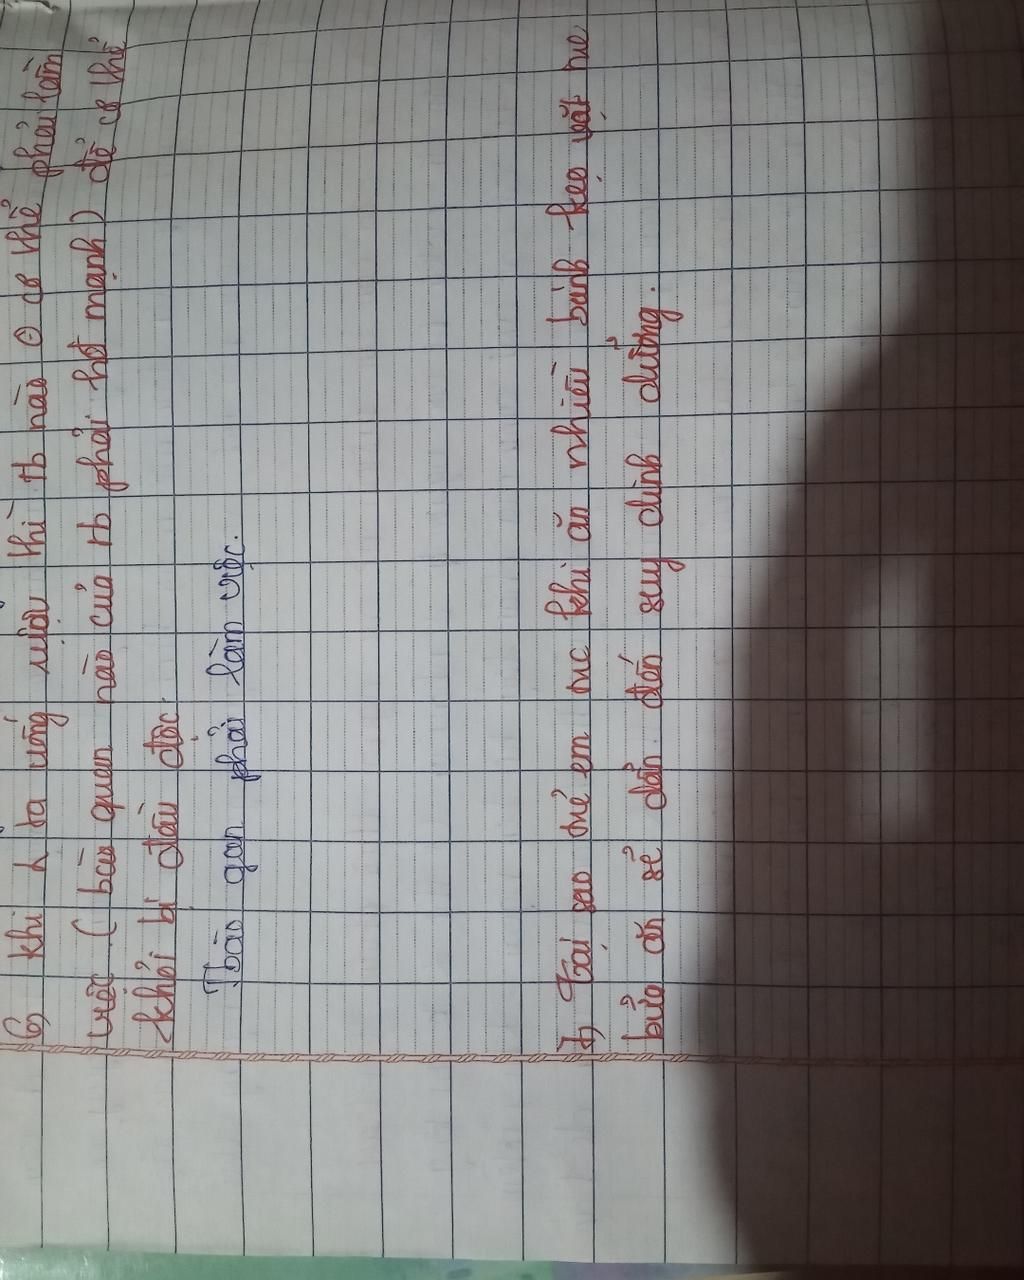 6, khi λ ta uống rượu thì tb nào o có thể phải làm
việc (bào quan nào của tb phải hđ mạnh) để có thể
khỏi bị đầu độc.
Tbào gan phải làm việc.
7, Tại sao trẻ em trc khi ăn nhiều bánh kẹo vặt trc
bửa ăn sẻ dẩn đến suy dinh dưởng.